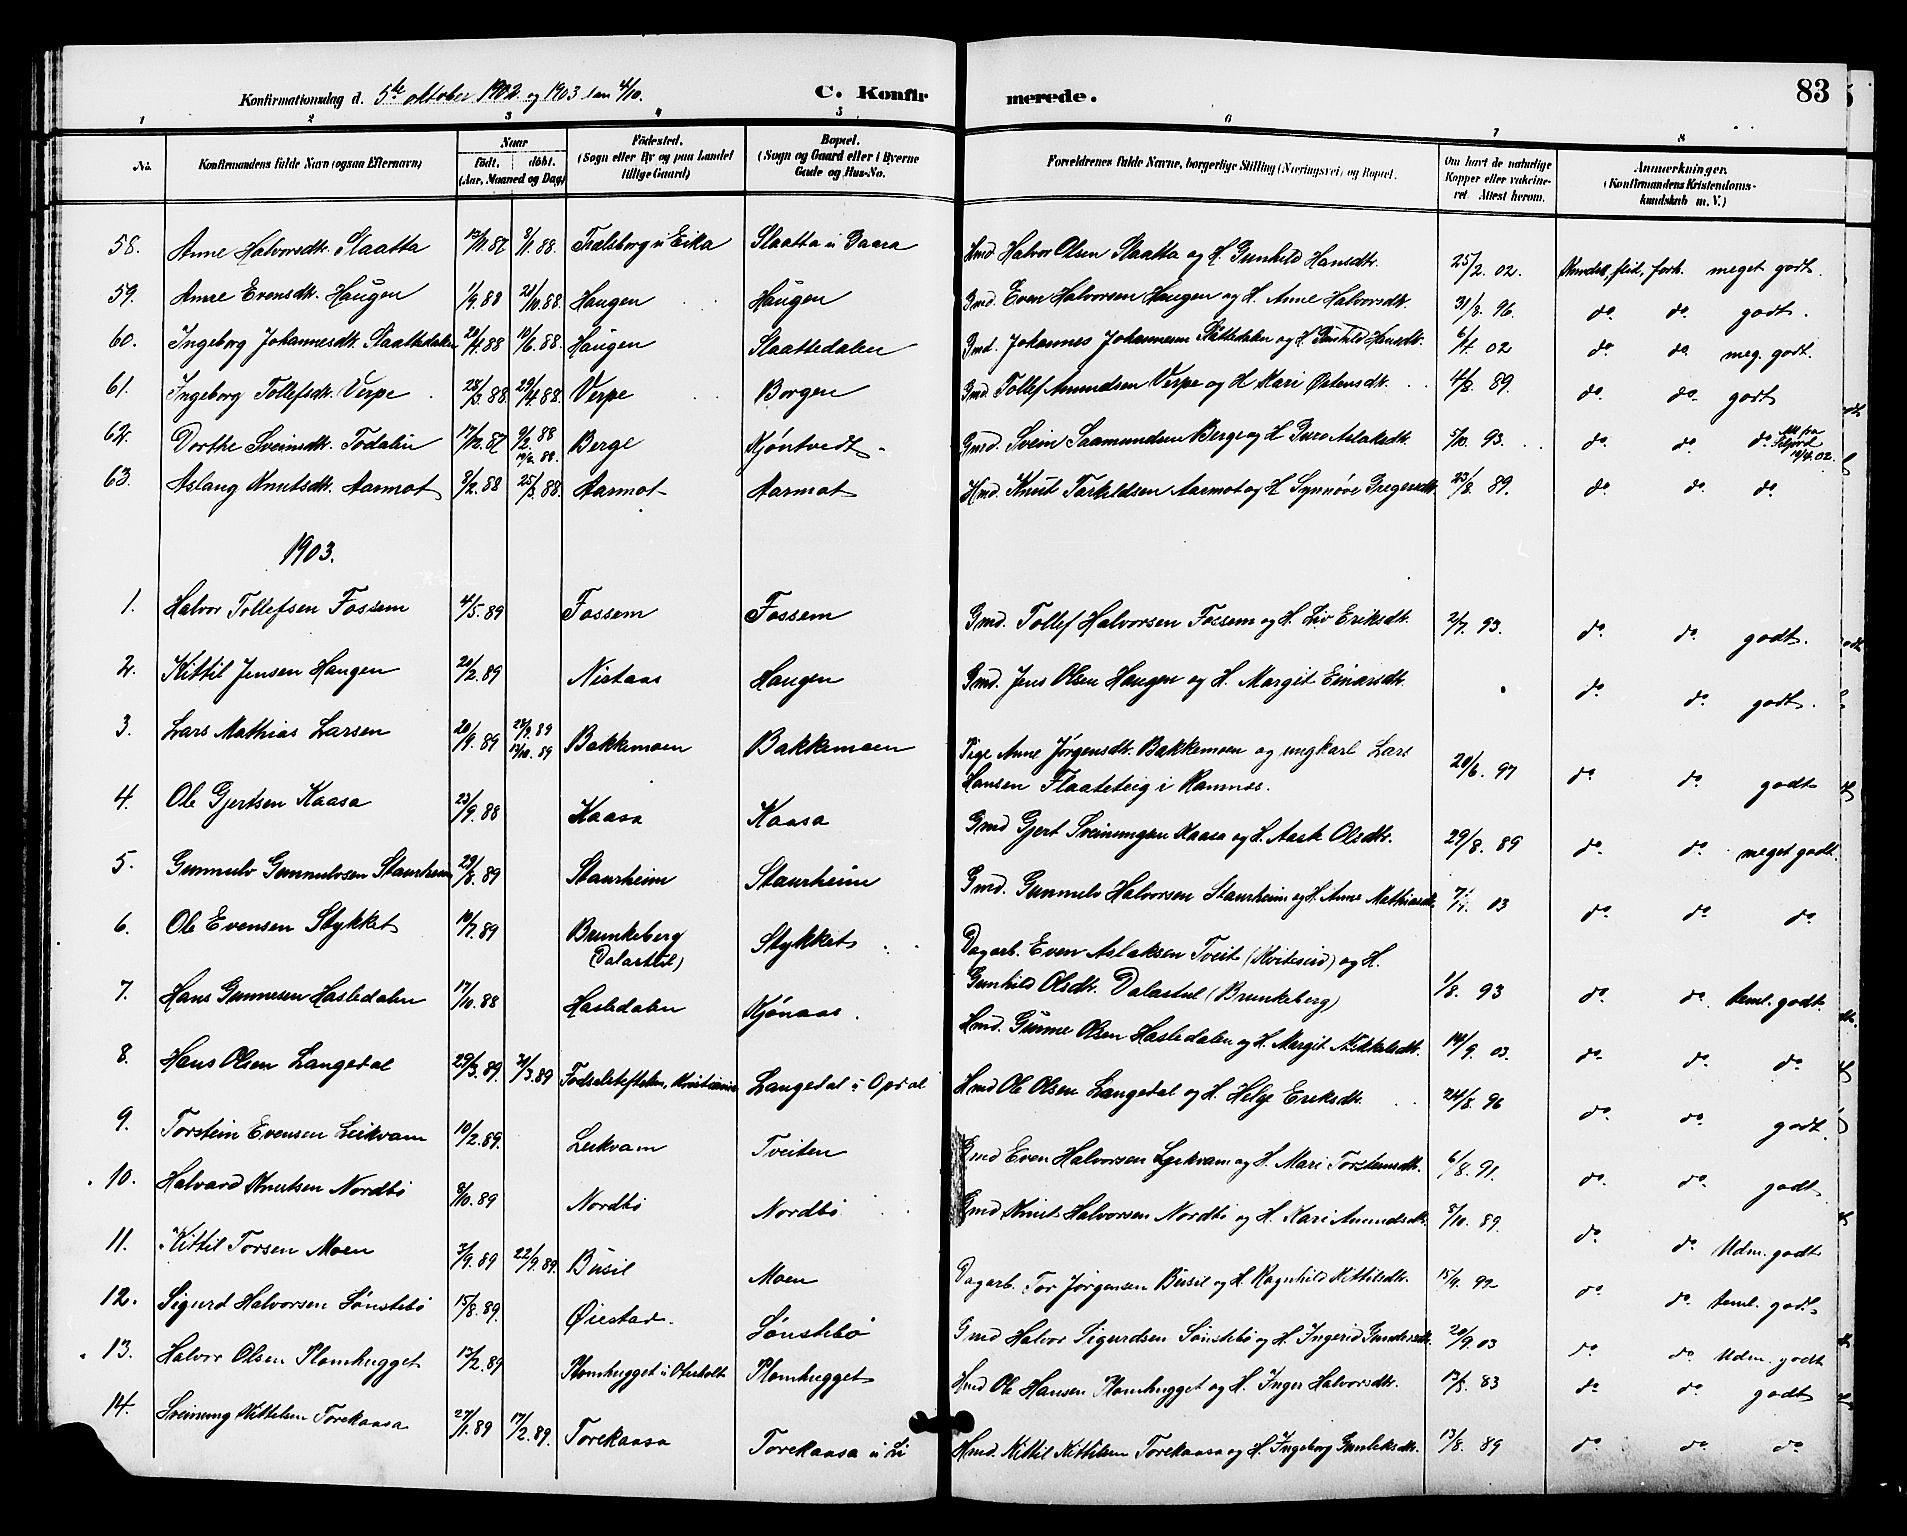 Konfirmationsdag d. 5te oktober 1902 og 1903 den 4/10.
C. Konfirmerede.
83
1 2 3 4 5 6 7 8
No.
Konfirmandens fulde Navn (ogsaa Efternavn)
Naar
födt. döbt.
(Aar, Maaned og Dag)
Födested.
(Sogn eller By og paa Landet tillige Gaard)
Bopæl.
(Sogn og Gaard eller i Byerne Gade og Hus-No.
Forældrenes fulde Navne, borgerlige Stilling (Næringsvei) og Bopæl.
Om havt de naturlige Kopper eller vakcineret Attest herom.
Anmærkninger.
(Konfirmandens Kristendomskundskab m. V.)
58. Anne Halvorsdtr. Slaatta 12/11 87 8/1 88. Træleborg u Eika Slaatta u Gaara Hmd Halvor Olsen Slaatta og H. Gunhild Hansdtr. 25/2. 02. Kundsk, flid, forh. meget godt.
59. Anne Evensdtr. Haugen 1/9. 88 21/10. 88. Haugen Haugen Gmd. Even Halvorsen Haugen og H. Anne Halvorsdtr. 31/8. 96. do. do. godt.
60. Ingeborg Johannesdtr. Slaattedalen 20/4. 88 10/6. 88. Haugen Slaattedalen Gmd. Johannes Johannesen Slåttedalen og H. Gunhild Hansdtr. 6/4. 02 do. do. meg. godt.
61. Ingeborg Tollefsdtr. Verpe 28/3. 88. 29/4. 88. Verpe Borgen Gmd. Tollef Amundsen Verpe og H. Kari Østensdtr. 4/8. 89. do. do. godt
62. Dorthe Sveinsdtr. Todalen 17/12. 87 9/2. 88 Berge Kjøntvedt Gmd. Svein Saamundsen Berge og H. Guro Aslaksdtr. 5/10. 93. do. do. do. Att fra 14/4. 02.
63. Aslaug Knutsdtr. Aarmot 9/2. 88 25/3. 88. Aarmot Aarmot Hmd. Knut Torkildsen Aarmot og H. Synnøve Gregersdtr. 23/8. 89. do. do. do.
1903.
1. Halvor Tollefsen Fossem 4/5. 89 Fossem Fossem Gmd. Tollef Halvorsen Fossem og H. Liv Eriksdtr. 2/7. 93. do. do. godt.
2. Kittil Jensen Haugen 20/2. 89 Nistaas Haugen Gmd. Jens Olsen Haugen og H. Margit Einarsdtr. do. do. godt.
3. Lars Mathias Larsen 20/9. 89 28/9. 89 13/10. 89 Bakkemoen Bakkemoen Pige Anne Jørgensdtr. Bakkemoen og ungkarl Lars
Hansen Flaateteig i Ramnes. 20/6. 97 do. do. godt
4. Ole Gjertsen Kaasa 23/9. 88 Kaasa Kaasa Gmd Gjert Sveinungsen Kaasa og H. Aase Olsdtr. 29/8. 89 do. do. meget godt.
5. Gunnulv Gunnulvsen Staurheim 29/8. 89 Staurheim Staurheim Gmd. Gunnulv Halvorsen Staurheim og H. Anne Mathisdtr. 03 do. do. do.
6. Ole Evensen Stykket 10/7. 89 Brunkeberg
(Dalastul) Stykket Dagarb. Even Aslaksen Tveit (Kviteseid) og H.
Gunhild Olsdtr. Dalastul (Brunkeberg) 1/8. 93 do. do. teml. godt.
7. Hans Gunnesen Hasledalen 17/10. 88 Hasledalen Kjønaas. Hmd. Gunne Olsen Hasledalen og H. Margit Mikkelsdtr. 14/9. 03. do. do. do.
8. Hans Olsen Langedal 29/3. 89. 31/3. 89 Fødselsstiftelsen, Kristiania Langedal u Opdal Hmd Ole Olsen Langedal og H. Helge Eriksdtr. 24/8. 96 do. do. godt.
9. Torstein Evensen Leikvam 10/2. 89. Leikvam Tveiten Gmd Even Halvorsen Leikvam og H. Mari Torsteinsdtr. 6/8. 91. do. do. godt
10. Halvard Knutsen Nordbø 8/10. 89 Nordbø Nordbø Gmd Knut Halvorsen Nordbø og H. Kari Amundsdtr. 8/10. 89. do. do. Udm. godt
11. Kittil Torsen Moen 3/9. 89 22/9. 89. Busil Moen Dagarb. Tor Jørgensen Busil og H. Ragnhild Kittilsdtr. do. do. teml. godt
12. Sigurd Halvorsen Sønstebø 15/8. 89. Øiestad. Sønstebø Gmd Halvor Sigurdsen Sønstebø og H. Ingerid Gundersdtr. 20/9. 03 do. do. Udm. godt
13. Halvor Olsen Plomhugget 13/2. 89 Plomhugget u Oterholt Plomhugget Hmd Ole Hansen Plomhugget og H. Inger Halvorsdtr. 83 do. do. godt
14. Sveinung Kittilsen Torekaasa 27/1. 89 17/2. 89. Torekaasa Torekaasa u Li Hmd. Kittil Kittilsen Torekaasa og H. Ingeborg Gunleksdtr. 13/8. 89 do. do. do.